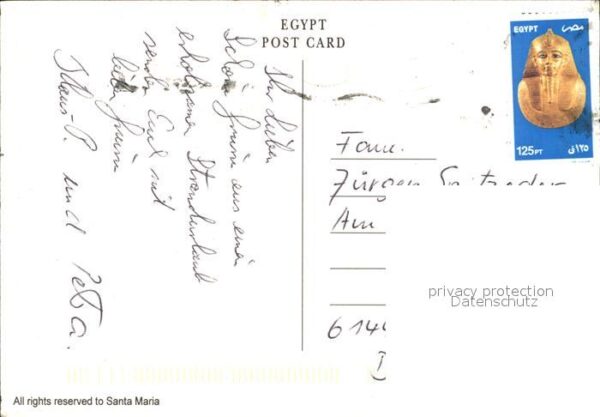 EGYPT
POST CARD
Ihr Lieben
Schöne Grüsse aus einem
erholsamen Strandurlaub
sendet Euch mit
lieben Grüssen
Klaus-P. und Petra.
EGYPT مصر
125PT ١٢٥ق
Fam.
Jürgen
Am
614
D
privacy protection
Datenschutz
All rights reserved to Santa Maria